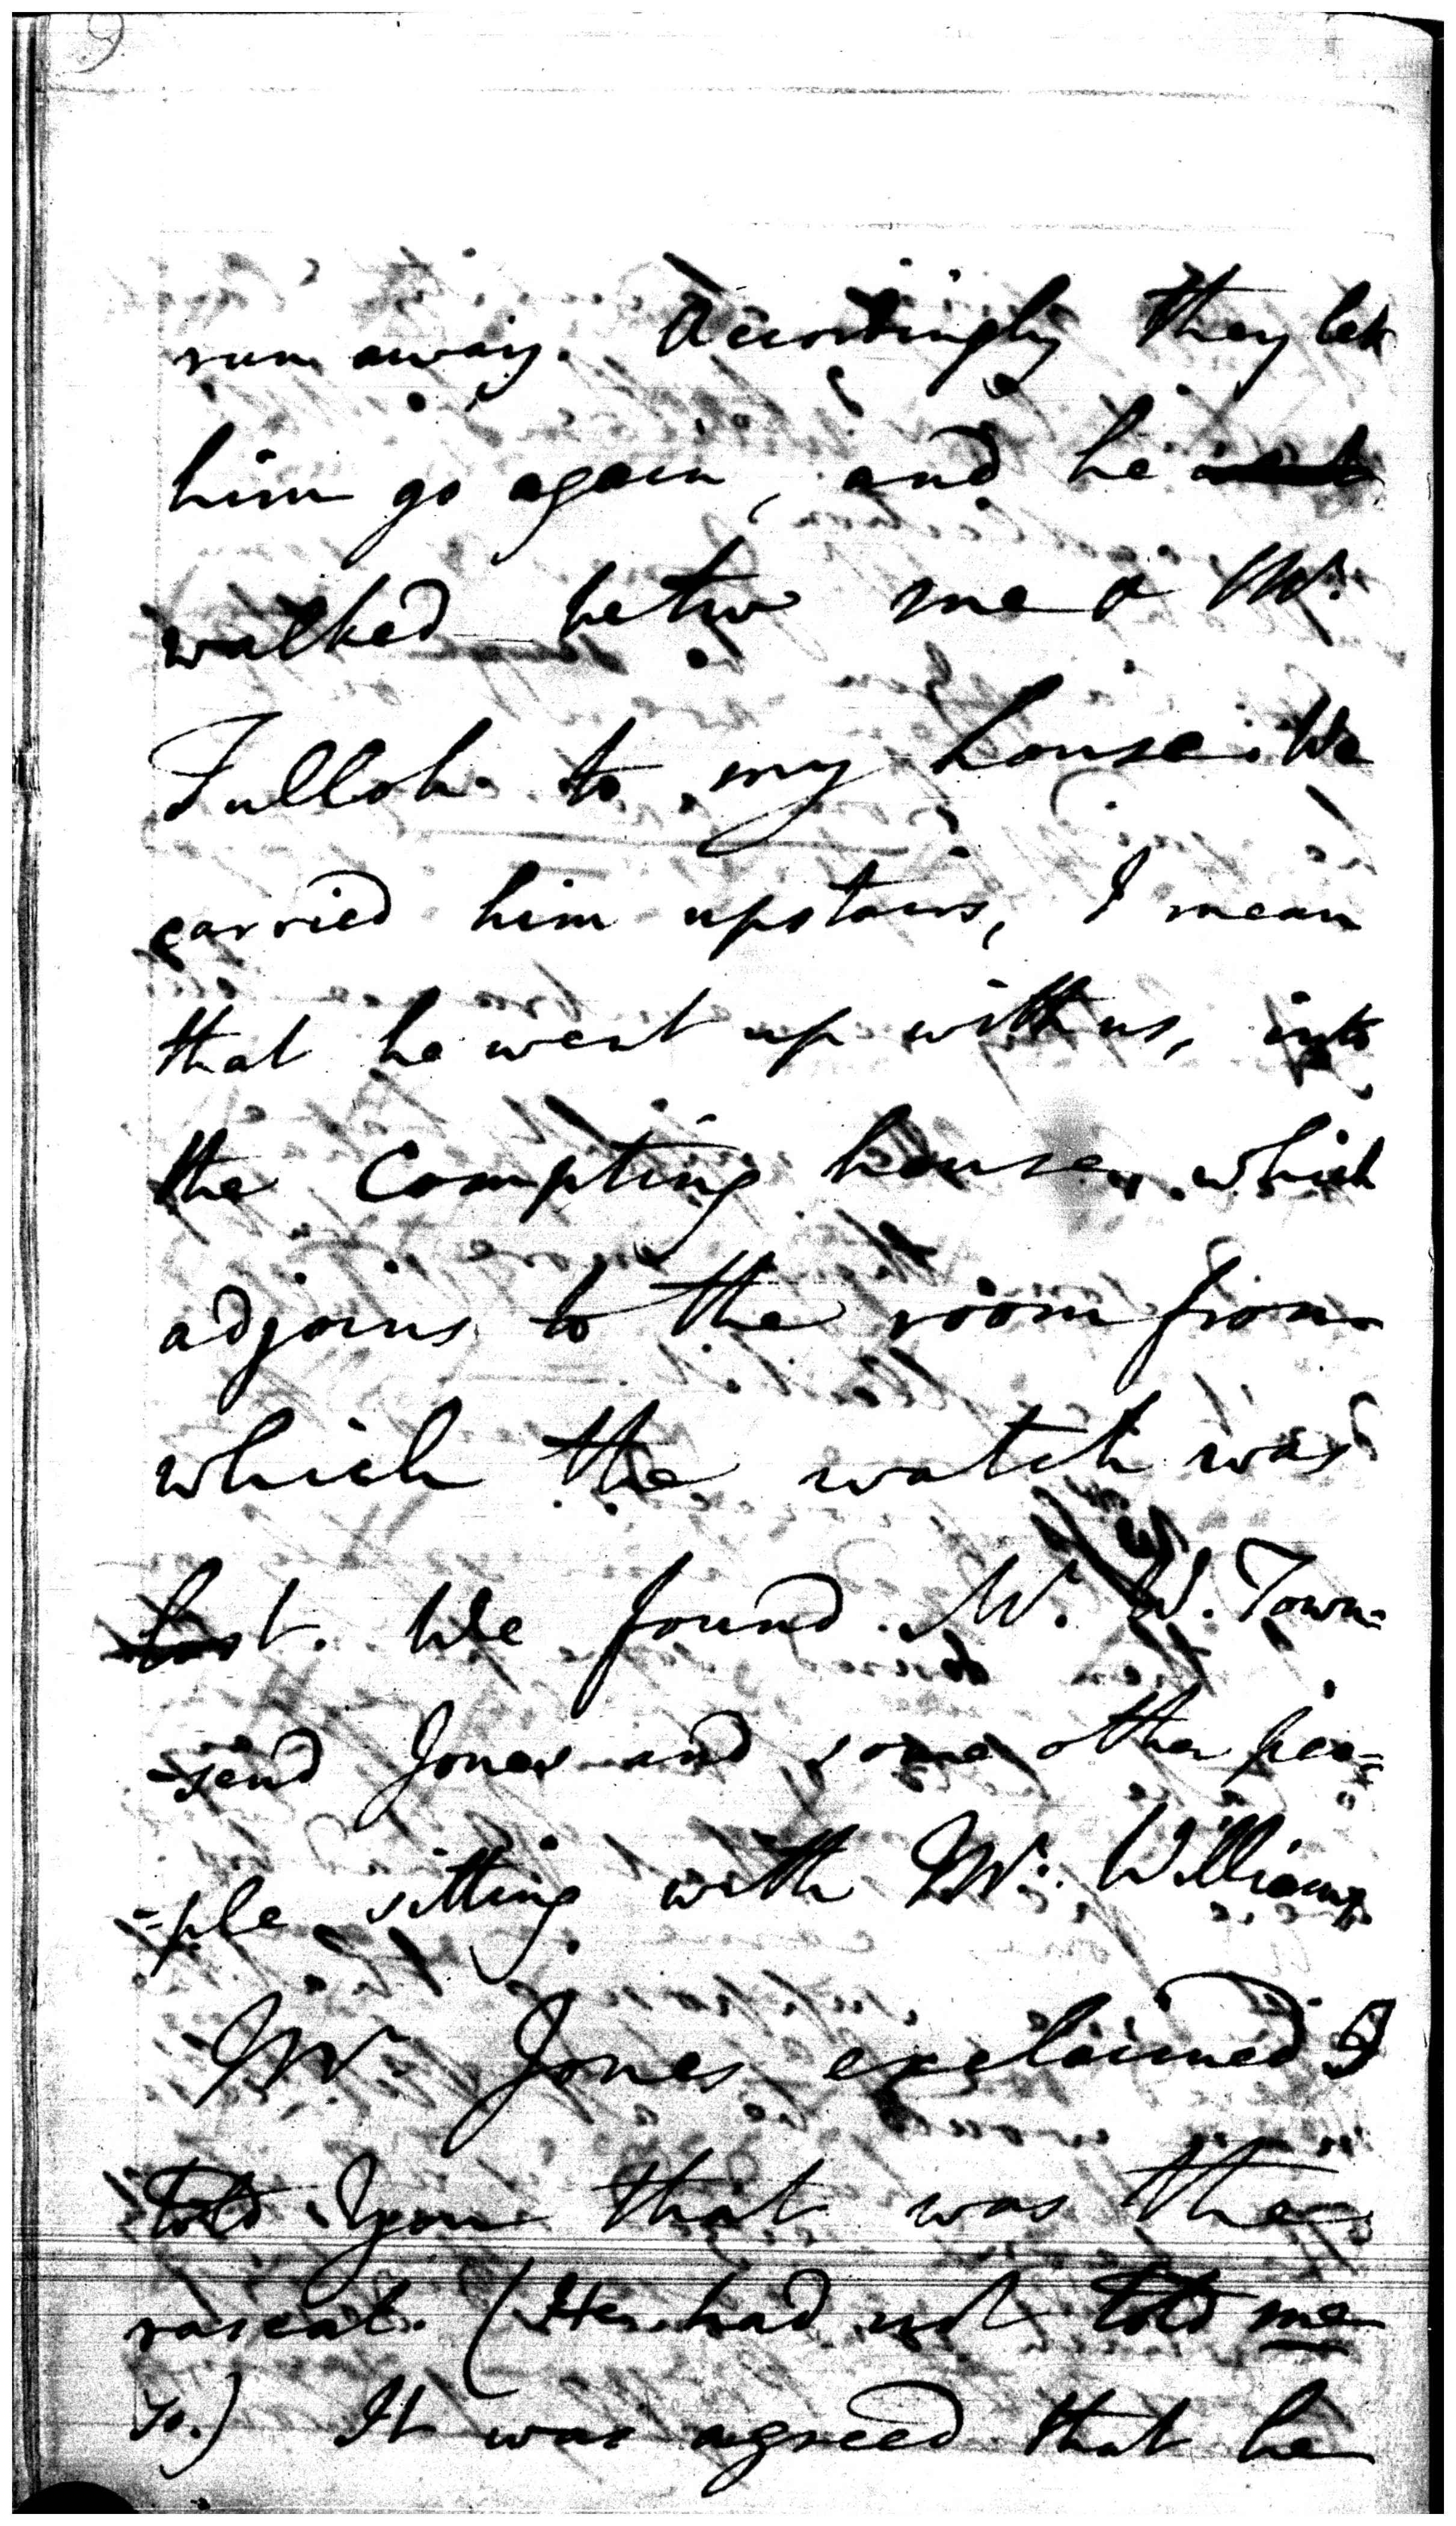 run away. Accordingly they let
him go again, and he
walked betw me & Mr.
Tulloh to my house. We
carried him upstairs, I mean
that he went up with us, into
the Compting house, which
adjoins to the room from
which the watch was
lost. We found Mr. W. Town-
-send Jones and some other peo=
=ple sitting with Mr. Williams
Mr. Jones exclaimed I
told you that was the
rascal. (He had not told me
so.) It was agreed that he